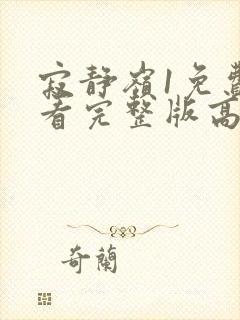 寂静嶺1免費
看完整版高
奇蘭